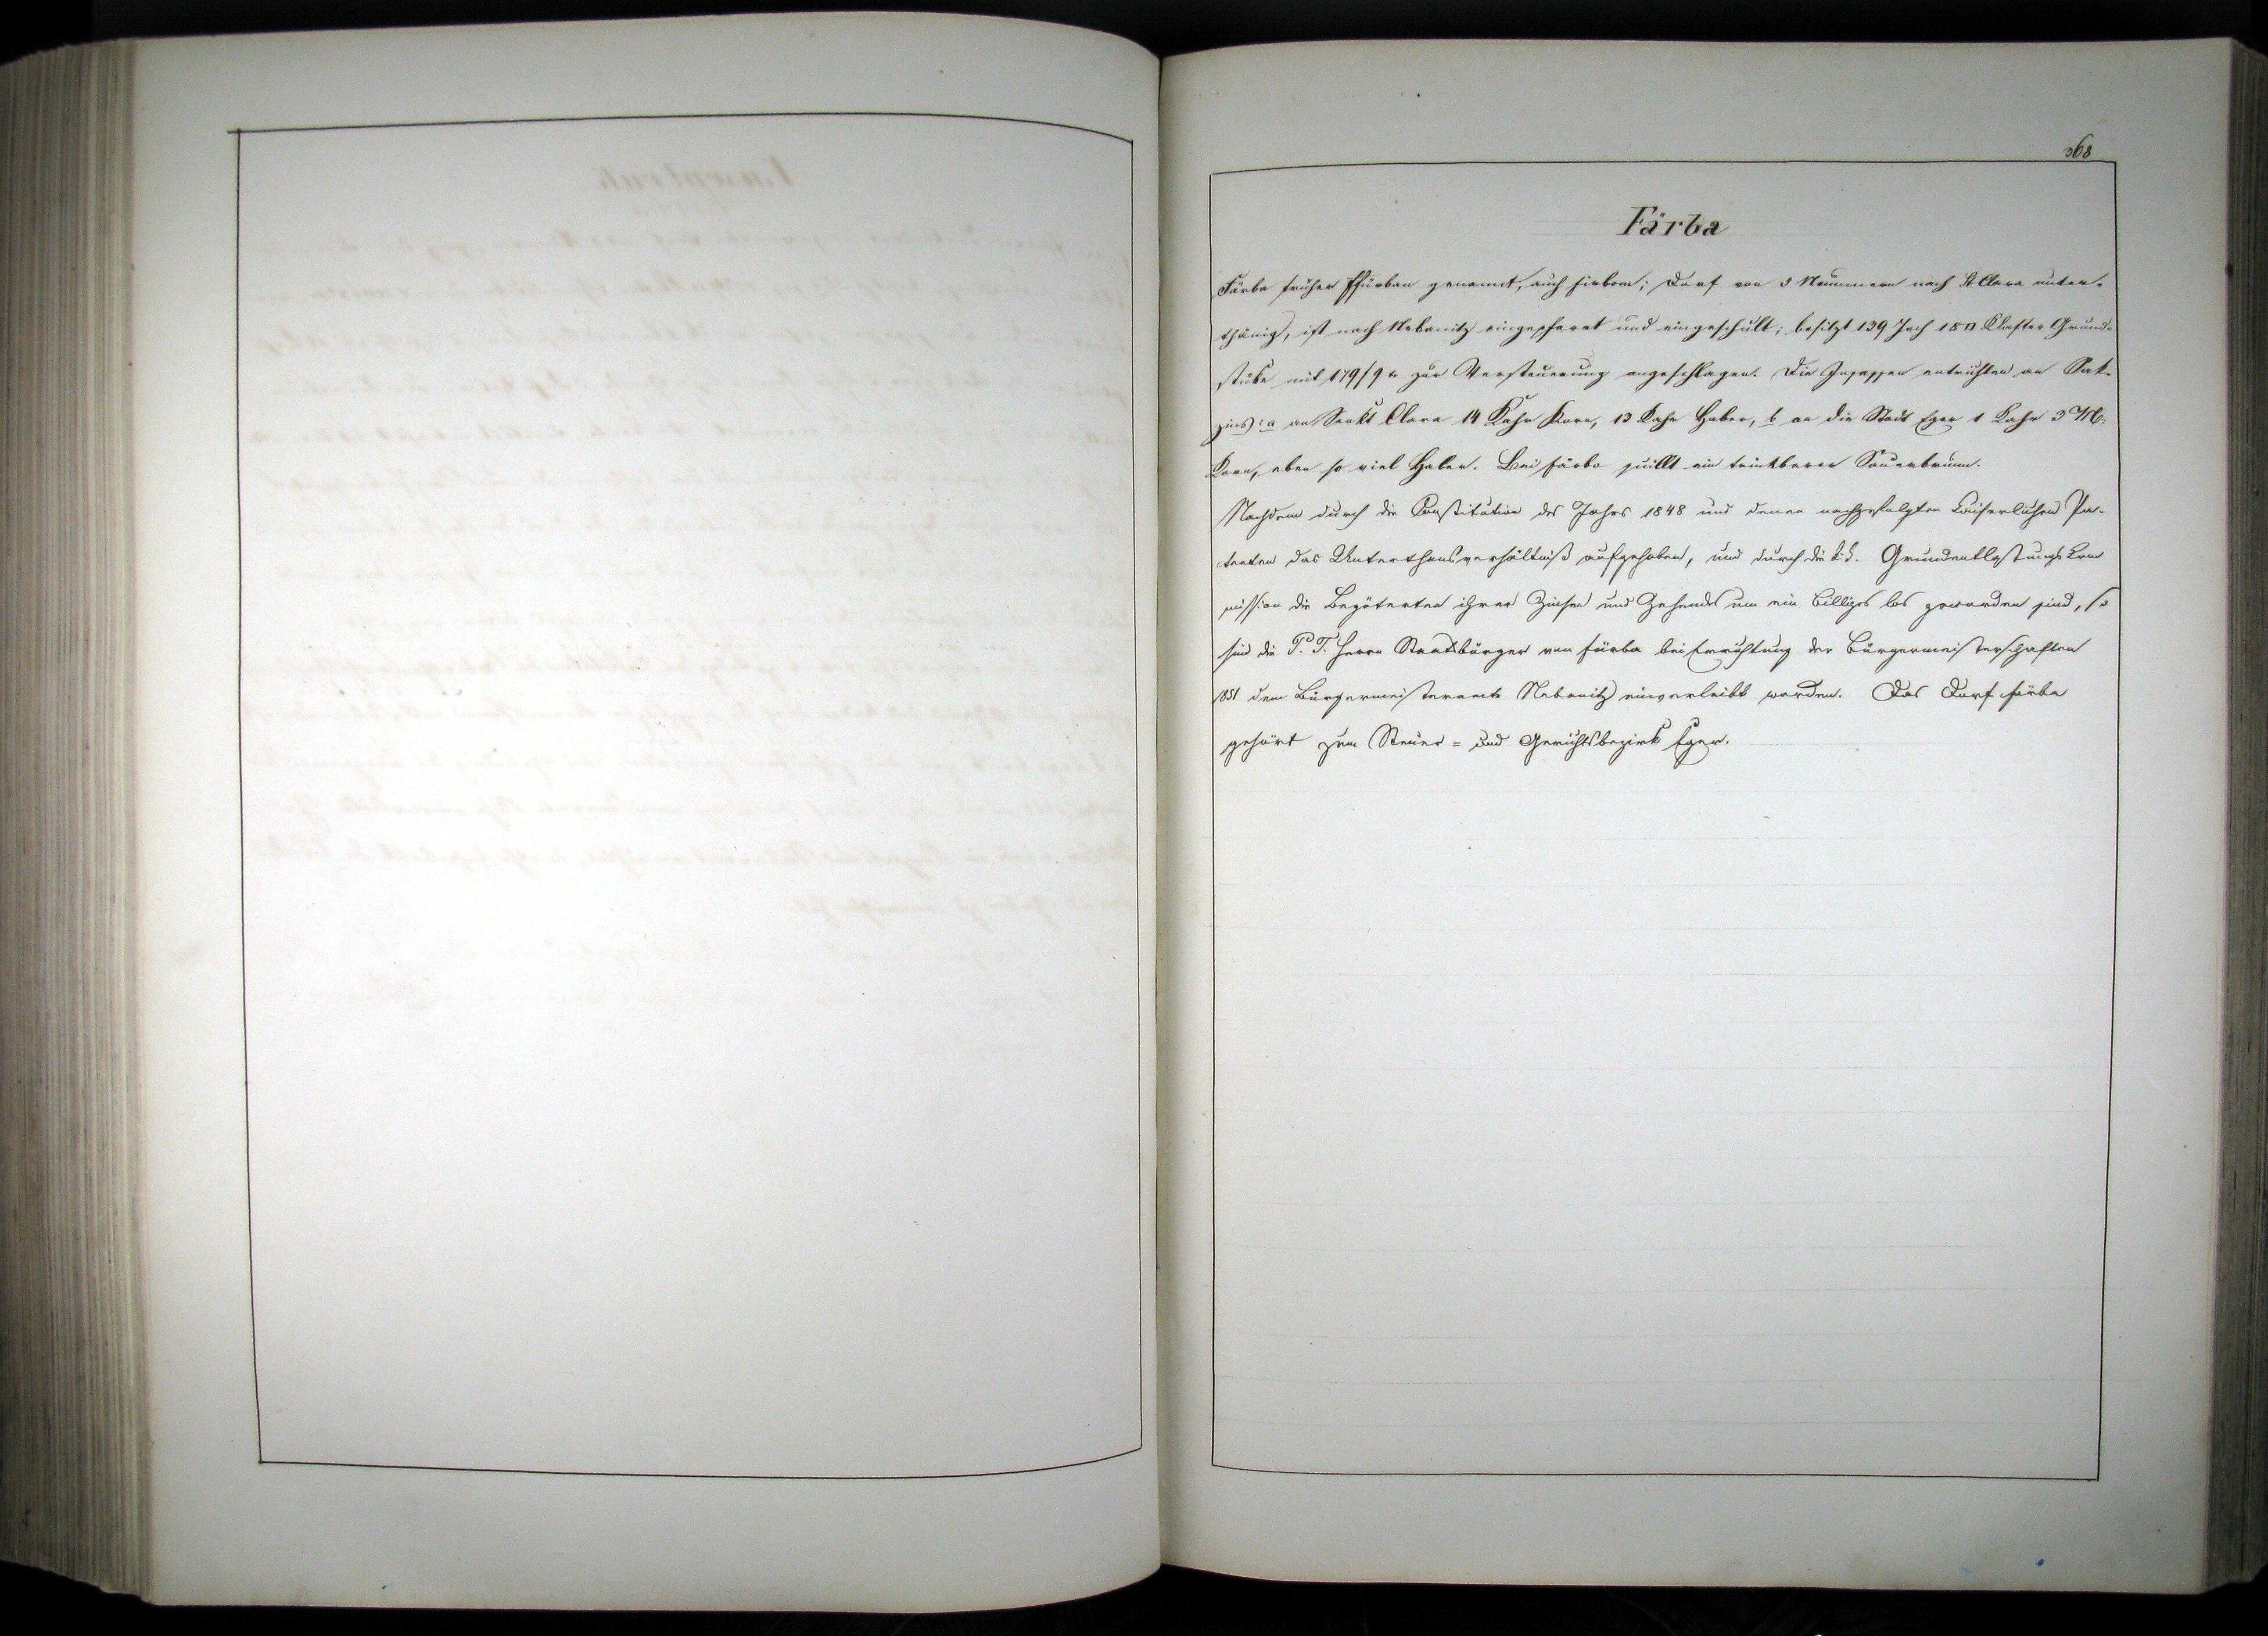 368
Färba
Färba früher ffürban genannt, auch firbom; Dorf von 5 Nummern nach St Clara unter-
thänig, ist nach Nebanitz eingepfarrt und eingeschult; besitzt 139 Joch 18 □ Klafter Grund-
stüke mit 179/9 zur Versteuerung angeschlagen. Die Insassen entrichten an Sak-
zins: a an Sankt Clara 14 Kahr Korn, 13 Kahr Haber, b an die Stadt Eger 1 Kahr 3
Korn, eben so viel Haber. Bei Färba quillt ein trinkbarer Sauerbrunn.
Nachdem durch die Constitution des Jahrs 1848 und denen nachgefolgten kaiserlichen Pa-
tenten das Unterthansverhältniß aufgehoben, und durch die k. k. Grundentlastungs Com
mission die Begüterten ihrer Zinsen und Zehends um ein billiges los geworden sind, so
sind die P. T. Herrn Staatsbürger von Färba bei Errichtung der Bürgermeisterschaften
1851 dem Bürgermeisteramte Nebanitz einverleibt worden. Das Dorf Färba
gehört zum Steuer = und Gerichtsbezirk Eger.